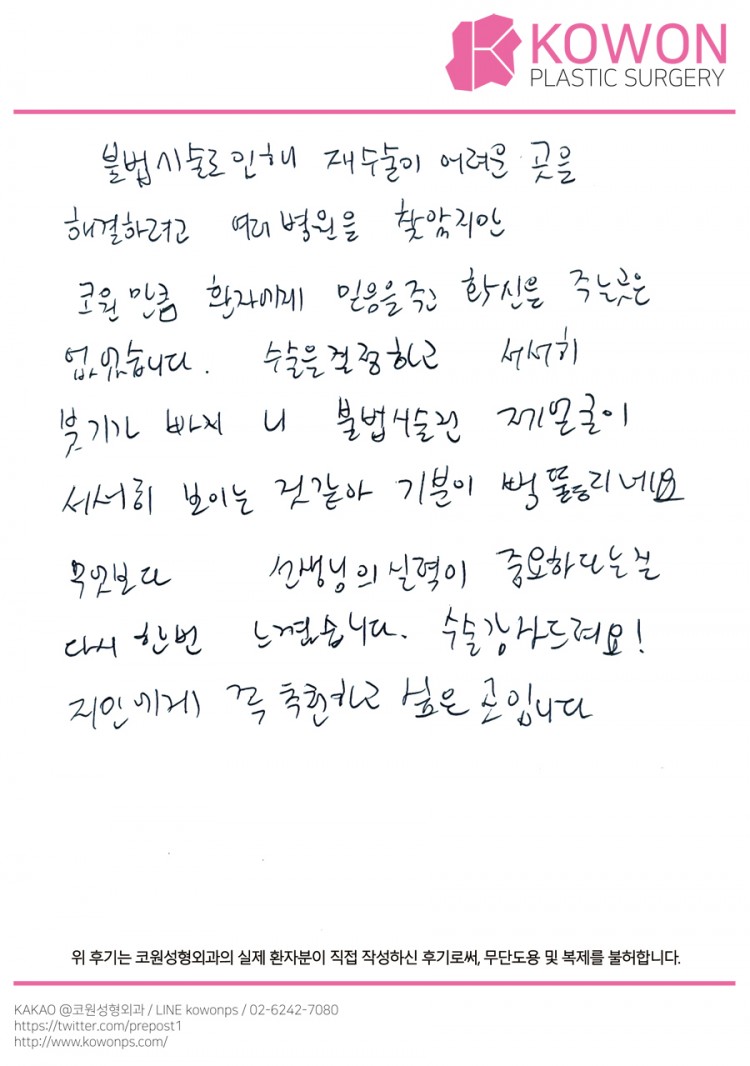 KOWON
PLASTIC SURGERY
불법시술로 인해 재수술이 어려운 곳을
해결하려고 여러 병원을 찾았지만
코원 만큼 환자에게 믿음을 주고 확신을 주는곳은
없었습니다. 수술을 결정하고 서서히
붓기가 빠지 니 불법시술전 제얼굴이
서서히 보이는 것같아 기분이 뻥 뚫리네요
무엇보다 선생님의 실력이 중요하다는걸
다시 한번 느꼈습니다. 수술감사드려요!
지인에게 꼭 추천하고 싶은 곳입니다
위 후기는 코원성형외과의 실제 환자분이 직접 작성하신 후기로써, 무단도용 및 복제를 불허합니다.
KAKAO @코원성형외과 / LINE kowonps / 02-6242-7080
https://twitter.com/prepost1
http://www.kowonps.com/